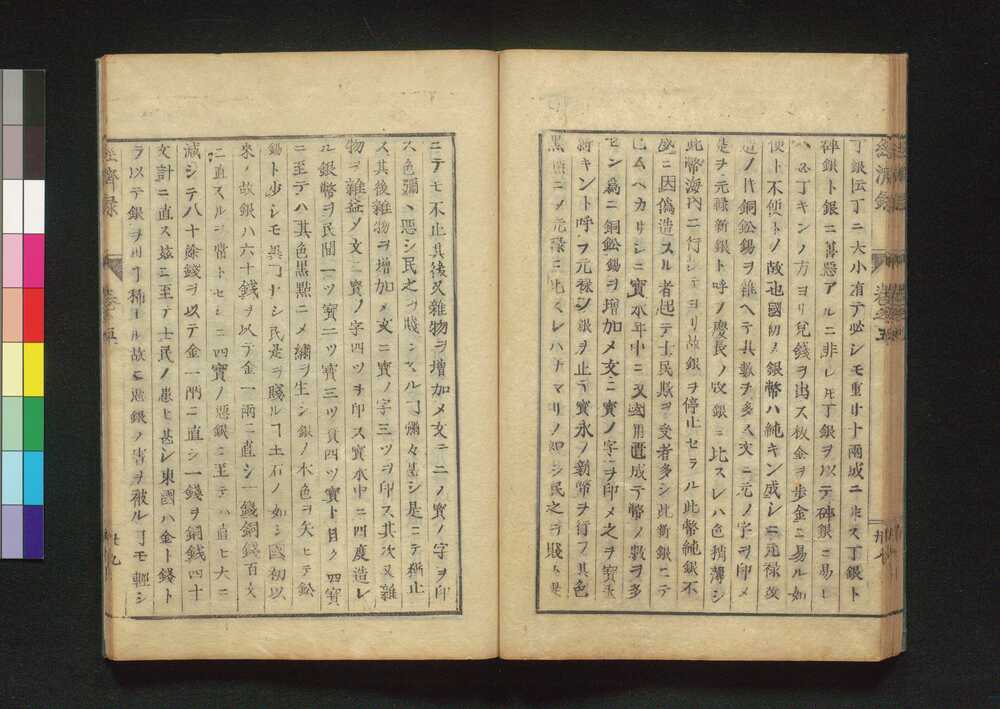 經濟錄 卷之五
丁銀云丁ニ大小有テ必シモ重サ十兩ニ足ス丁銀ト
碎銀ト銀ニ善惡アルニ非レ𪜈丁銀ヲ以テ碎銀ニ易レ
ハ必丁キンノ方ヨリ兌錢ヲ出ス板金ヲ歩金ニ易ル如
便ト不便トノ故也國初ノ銀幣ハ純キン成レニ元祿改
造ノ片銅鈆錫ヲ雜ヘテ其數ヲ多ス文ニ元ノ字ヲ印メ
是ヲ元祿新銀ト呼フ慶長ノ故銀ニ比スレハ色稍薄シ
此幣海内ニ行シテヨリ故銀ヲ停止セラル此幣純銀不
盛ニ因偽造スル者起テ士民欺ヲ受者多シ此新銀ニテ
ヘカリシニ寶永年中ニ又國用匱成テ幣ノ數ヲ多
セン爲ニ銅鈆錫ヲ增加メ文ニ寶ノ字ヲ印メ之ヲ寶永
新キント呼フ元祿ノ銀ヲ止テ寶永ノ新幣ヲ行フ其色
黑㸃ニメ元祿ニ比スレハナマリノ如シ民之ヲ賤
ニテモ不止其後又雜物ヲ增加メ文ニ二ノ寶ノ字ヲ印
ス色彌〻惡シ民之ヲ賤シスルヿ彌々甚シ是ニテ猶止
ス其後雜物ヲ增加メ文ニ寶ノ字三ツヲ印ス其次又雜
物ヲ雜益ノ文ニ寶ノ字四ツヲ印ス寶永中ニ四度造レ
ル銀幣ヲ民間一ツ寶二ツ寶三ツ寶四ツ寶ト目ク四寶
ニ至テハ其色黑㸃ニメ繡ヲ生シ銀ノ本色ヲ失ヒテ鈆
錫ト少シモ異ナシ民是ヲ賤ルヿ土石ノ如シ國初以
來ノ故銀ハ六十錢ヲ以テ金一兩ニ直シ一錢銅錢百文
ニ直スルヲ常トセシニ四寶ノ惡銀ニ至テハ直ヒ大ニ
減シテ八十餘錢ヲ以テ金一兩ニ直シ一錢ヲ銅錢四十
文計ニ直ス玆ニ至テ士民ノ患ヒ甚シ東國ハ金ト錢ト
ヲ以テ銀ヲ用ヿ稀ナル故ニ惡銀ノ害ヲ被ルヿモ輕シ
經濟錄 卷之五 廿九